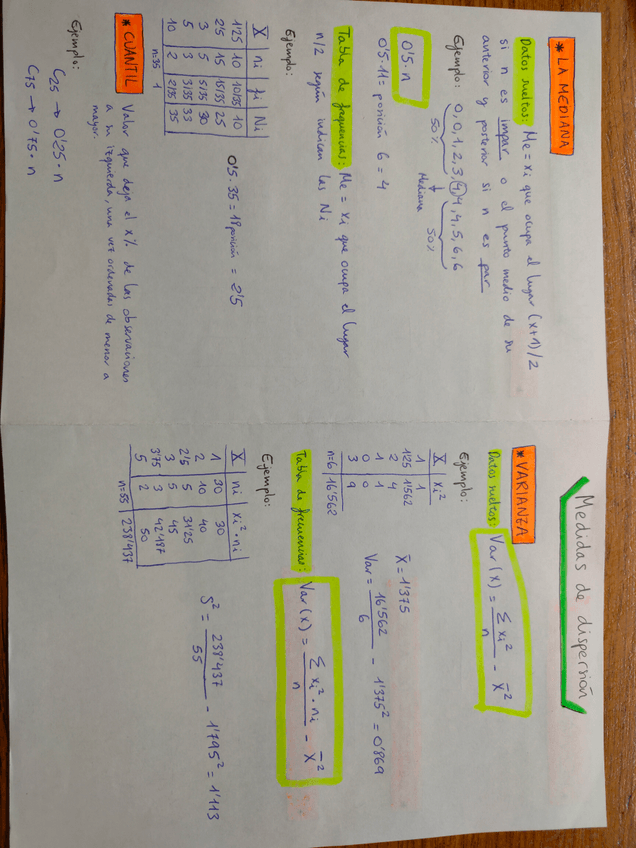 * LA MEDIANA
Datos sueltos: Me = xi que ocupa el lugar (x+1)/2
si n es impar o el punto medio de su
anterior y posterior si n es par
Ejemplo: 0, 0, 1, 2, 3, 4, 4, 4, 5, 6, 6
50% Mediana 50%
0'5·n
0'5·11 = posición 6 = 4
Tabla de frecuencias: Me = xi que ocupa el lugar
n/2 según indican las Ni
Ejemplo:
X ni fi Ni
1'25 10 10/35 10
25 15 15/35 25
3 5 5/35 30
5 3 3/35 33
10 2 2/35 35
n=35 1
0'5·35 = 18 posición = 2'5
* CUANTIL Valor que deja el x% de las observaciones
a su izquierda, una vez ordenadas de menor a
mayor.
Ejemplo:
C25 → 0'25·n
C75 → 0'75·n
Medidas de dispersión
* VARIANZA
Datos sueltos: Var (x) = Σ xi² / n - X̄²
Ejemplo:
X xi²
1 1
1'25 1'562
2 4
1 1
0 0
3 9
n=6 16'562
X̄ = 1'375
Var = 16'562 / 6 - 1'375² = 0'869
Tabla de frecuencias: Var (x) = Σ xi²·ni / n - X̄²
Ejemplo:
X ni xi²·ni
1 30 30
2 10 40
2'5 5 31'25
3 5 45
3'75 3 42'187
5 2 50
n=55 238'437
S² = 238'437 / 55 - 1'795² = 1'113